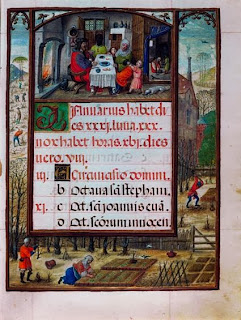 Januarius habet di
es xxxi. luna. xxx.
nox habet horas. xvj. dies
vero. viij.
iij. A Circumcisio domini.
b Octaua sc̄i stephani.
xi. c Oct. sc̄i joannis euā.
d Oct. sc̄orum innocen